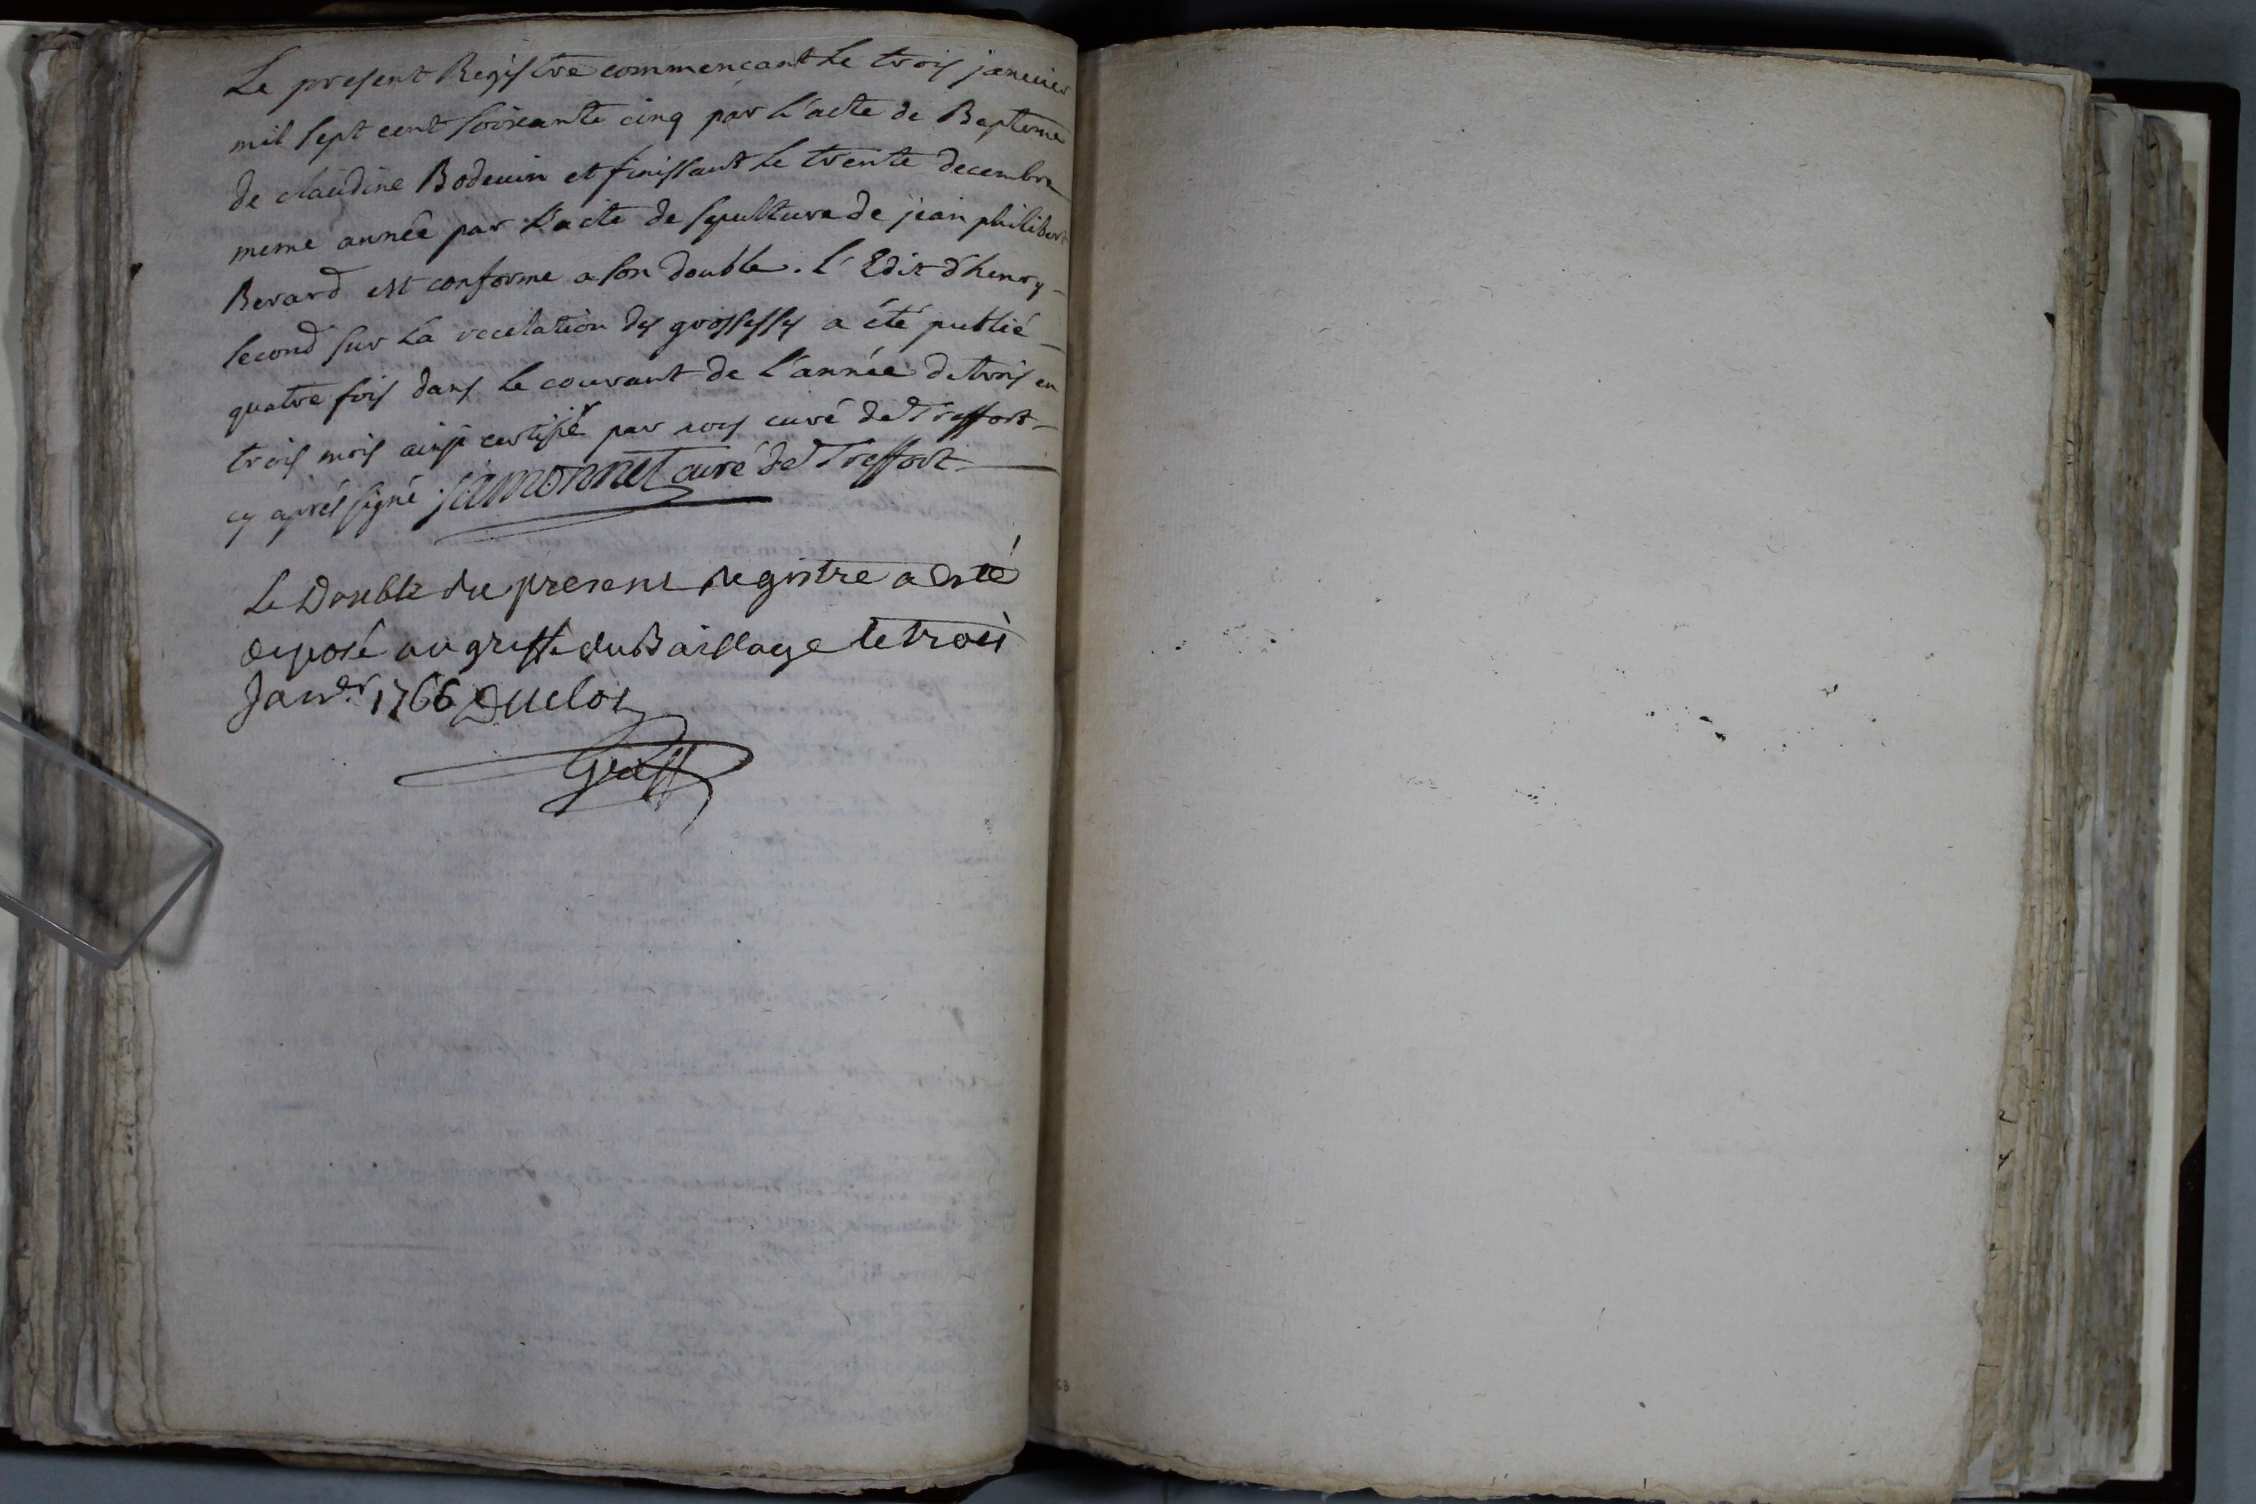 Le present Registre commencant le trois janvier
mil sept cent soixante cinq par l'acte de Bapteme
de claudine Boduin et finissant le trente decembre
meme année par l'acte de sepulture de jean philibert
Berard est conforme a son double. l'Edit d'henry
second sur la recelation des grossesses a été publié
quatre fois dans le courant de l'année de trois en
trois mois ainsi certifié par nous curé de Treffort
cy aprés signé. jamonnet curé de Treffort
Le Double du present registre a esté
deposé au greffe du Baillage le trois
Janv.er 1766 Duclos
Greff